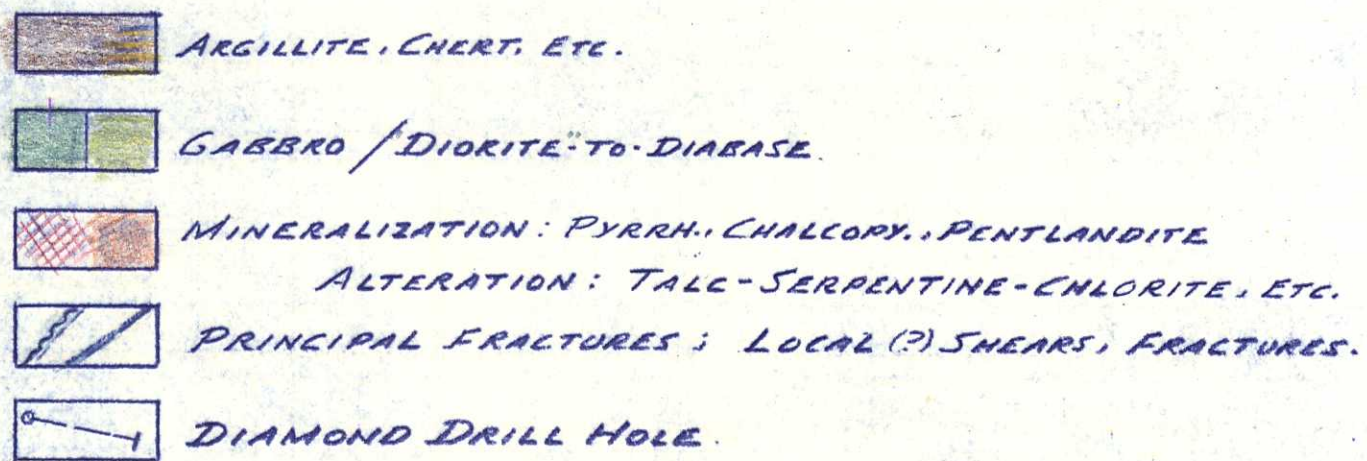 ARGILLITE, CHERT, ETC.
GABBRO / DIORITE-TO-DIABASE
MINERALIZATION: PYRRH., CHALCOPY., PENTLANDITE
ALTERATION: TALC-SERPENTINE-CHLORITE, ETC.
PRINCIPAL FRACTURES; LOCAL (?) SHEARS, FRACTURES.
DIAMOND DRILL HOLE.